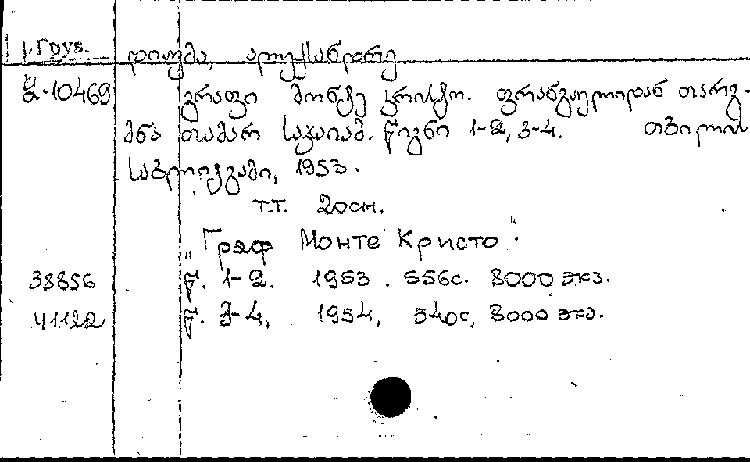 Груз. დიუმა, ალექსანდრე
Д-10469 გრაფი მონტე კრისტო. ფრანგულიდან თარგ-
მნა თამარ წიგნი 1-2, 3-4. თბილის
საბლიტგამი, 1953.
т.т. 2оем.
„Граф Монте Кристо".
38856 წ. 1-2. 1953. 556с. 8000 экз.
41122 წ. 3-4, 1954, 540с, 8000 экз.